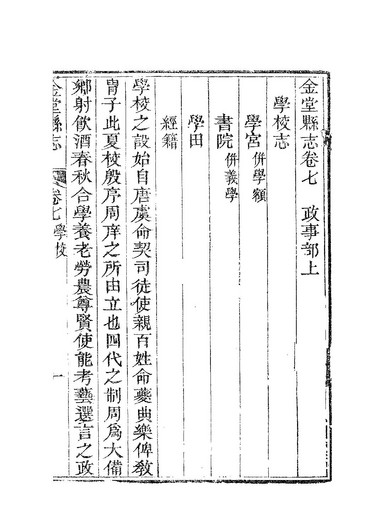 金堂縣志卷七　政事部上
學校志
學宮 併學額
書院 併義學
學田
經籍
學校之設始自唐虞命契司徒使親百姓命夔典樂俾敎
胄子此夏校殷序周庠之所由立也四代之制周爲大備
鄉射飮酒春秋合學養老勞農尊賢使能考藝選言之政
金堂縣志 卷七 學校 一